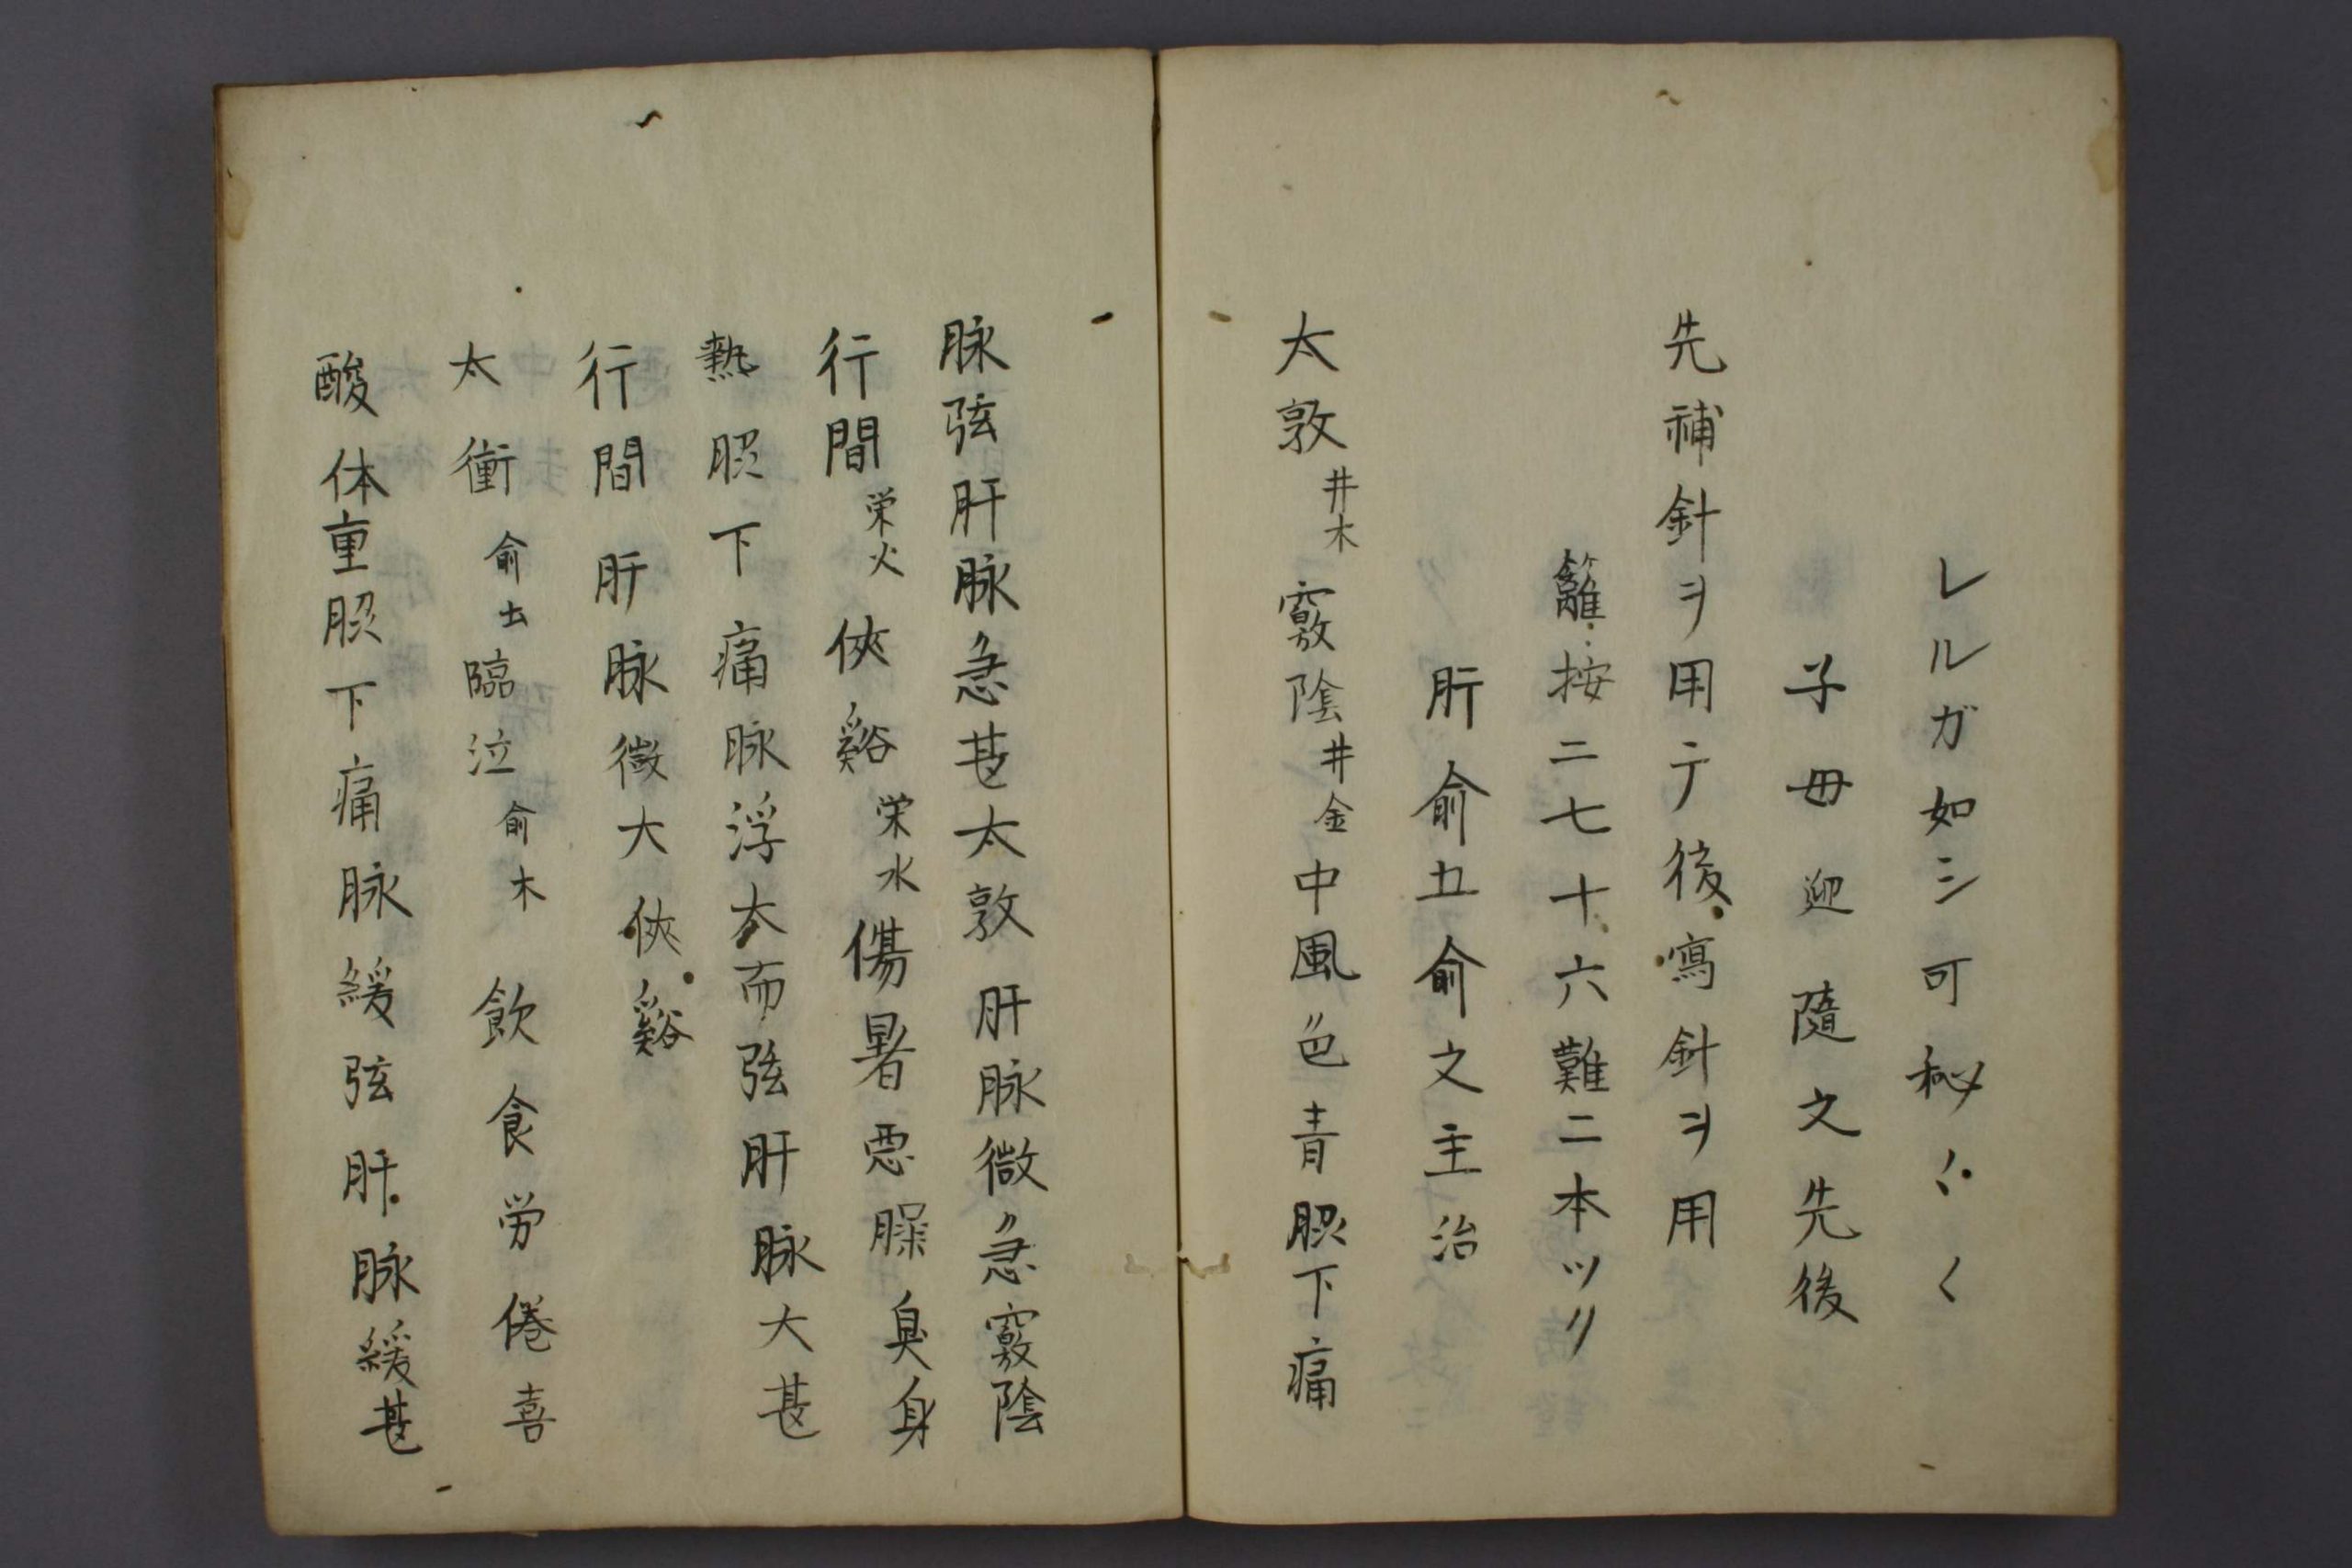 レルガ如シ可秘〱〱
子母迎隨之先後
先補針ヲ用テ後瀉針ヲ用
難按二七十六難二本ツリ
肝俞五俞之主治
太敦井木竅陰井金中風色青胠下痛
脉弦肝脉急甚太敦肝脉微急竅陰
行間栄火俠谿栄水傷暑悪臊臭身
熱胠下痛脉浮大而弦肝脉大甚
行間肝脉微大俠谿
太衝俞土臨泣俞木飲食労倦喜
酸体重胠下痛脉緩弦肝脉緩甚